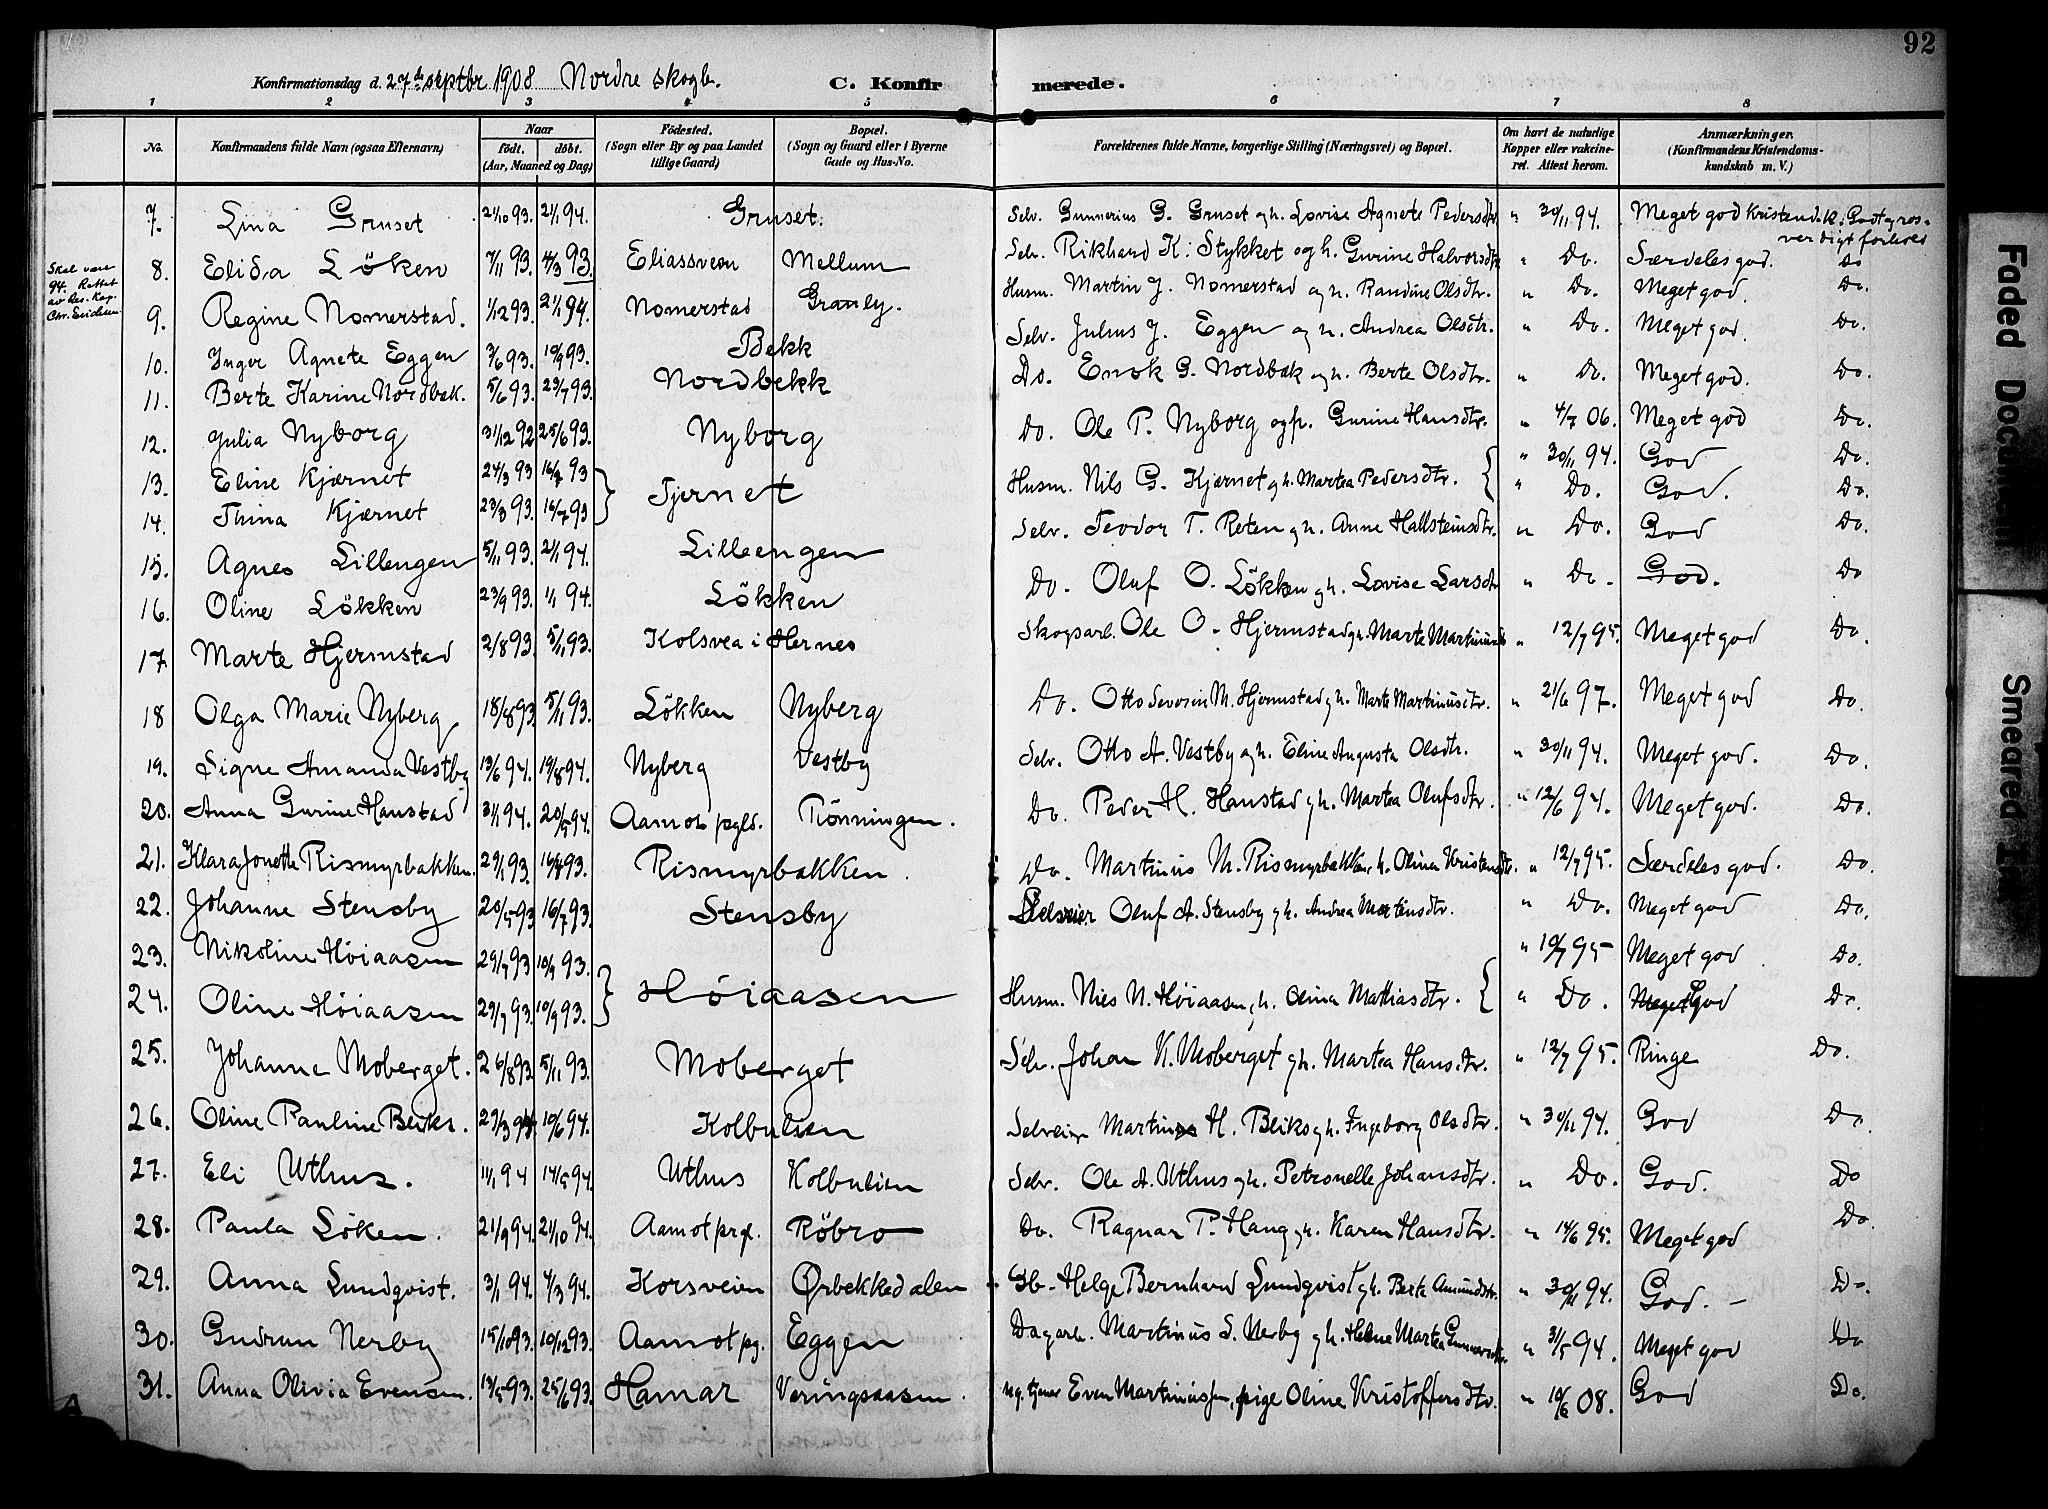 92
Konfirmationsdag d. 27de septbr. 1908 Nordre skogb. C. Konfirmerede.
1 2 3 4 5 6 7 8
No. Konfirmandens fulde Navn (ogsaa Efternavn) Naar født. døbt. (Aar, Maaned og Dag) Fødested. (Sogn eller By og paa Landet tillige Gaard) Bopæl. (Sogn og Gaard eller i Byerne Gade og Hus-No. Forældrenes fulde Navne, borgerlige Stilling (Næringsvei) og Bopæl. Om havt de naturlige Kopper eller vakcineret. Attest herom. Anmærkninger. (Konfirmandens Kristendomskundskab m. V.)
7. Lina Gruset 21/10 93. 2/1 94. Gruset. Selv. Gunnerius G. Gruset og h. Lovise Agnete Pedersdtr. " 30/11 94. Meget god Kristend.k. Godt og rosverdigt forhold
Skal være 94. Rettet av Res. Kap. Chr.
8. Elida Löken 7/11 93. 4/3 93. Eliassveen Mellum Selv. Rikhard K. Stykket og h. Gurine Halvorsdtr " Do. Særdeles god. Do
9. Regine Nomerstad. 1/12 93. 21/1 94. Nomerstad Granly. Husm. Martin J. Nomerstad og h. Randine Olsdtr. " Do. Meget god. Do.
10. Inger Agnete Eggen 3/6 93. 10/9 93. Bekk Selv. Julius J. Eggen og h. Andrea Olsdtr. " Do. Meget god. Do.
11. Berte Karine Nordbæk. 5/6 93. 23/7 93. Nordbekk Do. Enok G. Nordbæk og h. Berte Olsdtr. " Do. Meget god. Do.
12. Julia Nyborg 31/12 92 25/6 93. Nyborg Do. Ole P. Nyborg og fr. Gurine Hansdtr. " 4/7 06. Meget god Do.
13. Eline Kjærnet 24/3 93 16/7 93 } Tjernet Husm. Nils G. Kjærnet og h. Martea Pedersdtr. { " 30/11 94. God Do.
14. Thina Kjærnet 23/3 93. 16/7 93 " Do. God. Do.
15. Agnes Lillengen 5/11 93. 2/1 94. Lilleengen Selv. Teodor T. Reten og h. Anne Hallsteinsdtr. " Do. God Do.
16. Oline Lökken 23/9 93. 1/1 94. Lökken Do. Oluf O. Lökken og h. Lovise Larsdtr " Do. God. Do
17. Marte Hjermstad 2/8 93. 5/11 93. Kolsvea i Hernes Skogsarb. Ole O. Hjermstad og h. Marte Martinusdtr " 12/7 95. Meget god Do.
18 Olga Marie Nyberg 18/8 93. 5/11 93. Lökken Nyberg Do. Otto Severin M. Hjermstad og h. Marte Martinusdtr. " 21/6 97. Meget god Do.
19. Signe Amanda Vestby 13/6 94. 19/8 94. Nyberg Vestby Selv. Otto A. Vestby og h. Eline Augusta Olsdtr. " 30/11 94. Meget god. Do.
20. Anna Gurine Hanstad 31/1 94. 20/5 94. Aamot pgld. Rönningen. Do. Peder H. Hanstad og h. Martea Olufsdtr. " 12/6 94. Meget god. Do.
21. Klara Jonette Rismyrbakken. 29/1 93. 16/8 93. Rismyrbakken. Do. Martinus M. Rismyrbakken, h. Olina Kristensdtr. " 12/7 95. Særdeles god. Do.
22. Johanne Stensby 20/5 93 16/7 93. Stensby Selveier Oluf A. Stensby og h. Andrea Martinsdtr. " Do. Meget god Do.
23. Nikoline Høiaasen 29/7 93 10/9 93. } Høiaasen Husm. Nils N. Høiaasen, h. Olina Mathiasdtr. { " 19/7 95 Meget god Do.
24. Oline Høiaasen 29/7 93. 10/9 93. " Do. Meget God Do.
25. Johanne Moberget. 26/8 93 5/11 93. Moberget Selv. Johan K. Moberget og h. Martea Hansdtr. " 12/7 95. Ringe Do.
26. Oline Pauline Bleiks. 27/3 94 10/6 94. Kolbulien Selveier Martin H. Bleiks og h. Ingeborg Olsdtr. " 30/11 94. God Do.
27. Eli Uthus. 11/1 94 14/5 94. Uthus Kolbulien Selv. Ole A. Uthus og h. Petronelle Johansdtr. " Do. God. Do
28. Paula Löken. 21/9 94. 21/10 94. Aamot prgl. Röbro Do. Ragnar P. Haug og h. Karen Hansdtr. " 14/6 95. Meget god Do.
29. Anna Lundqvist. 3/1 94. 4/3 94. Korsveien Ørbekkedalen Gb. Helge Bernhard Lundqvist og h. Berte Amundsdtr. " 30/11 94. God. – Do.
30. Gudrun Nerby 15/10 93. 10/12 93. Aamot pg. Eggen Dagarb. Martinus S. Nerby og h. Helene Martea Gunnarsdtr " 31/5 94. Meget god Do
31. Anna Olivia Evensen. 13/5 93. 25/6 93. Hamar Veringsaasen. ug. tjener Even Martiniussen, pige Oline Kristoffersdtr. " 10/6 08. God Do.
Faded Document
Smeared Ink